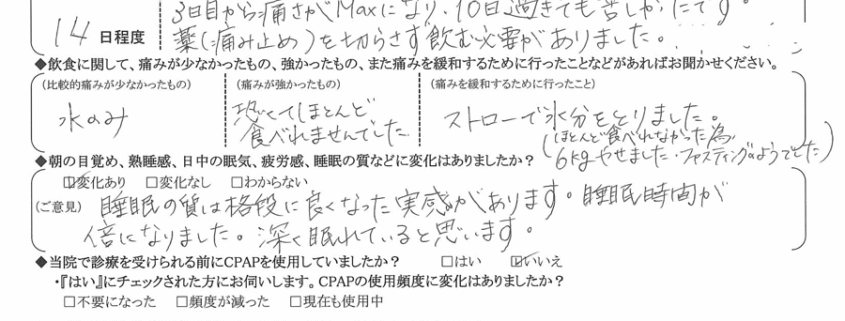 3日目から痛さがMaxになり、10日過ぎても苦しかったです。
14 日程度 薬(痛み止め)を切らさず飲む必要がありました。
◆飲食に関して、痛みが少なかったもの、強かったもの、また痛みを緩和するために行ったことなどがあればお聞かせください。
(比較的痛みが少なかったもの) (痛みが強かったもの) (痛みを緩和するために行ったこと)
水のみ 恐くてほとんど 食べれませんでした ストローで水分をとりました。
(ほとんど食べれなかった為、
6kgやせました・ファスティングのようでした)
◆朝の目覚め、熟睡感、日中の眠気、疲労感、睡眠の質などに変化はありましたか?
☑変化あり □変化なし □わからない
(ご意見) 睡眠の質は格段に良くなった実感があります。睡眠時間が
倍になりました。深く眠れていると思います。
◆当院で診療を受けられる前にCPAPを使用していましたか? □はい ☑いいえ
・『はい』にチェックされた方にお伺いします。CPAPの使用頻度に変化はありましたか?
□不要になった □頻度が減った □現在も使用中